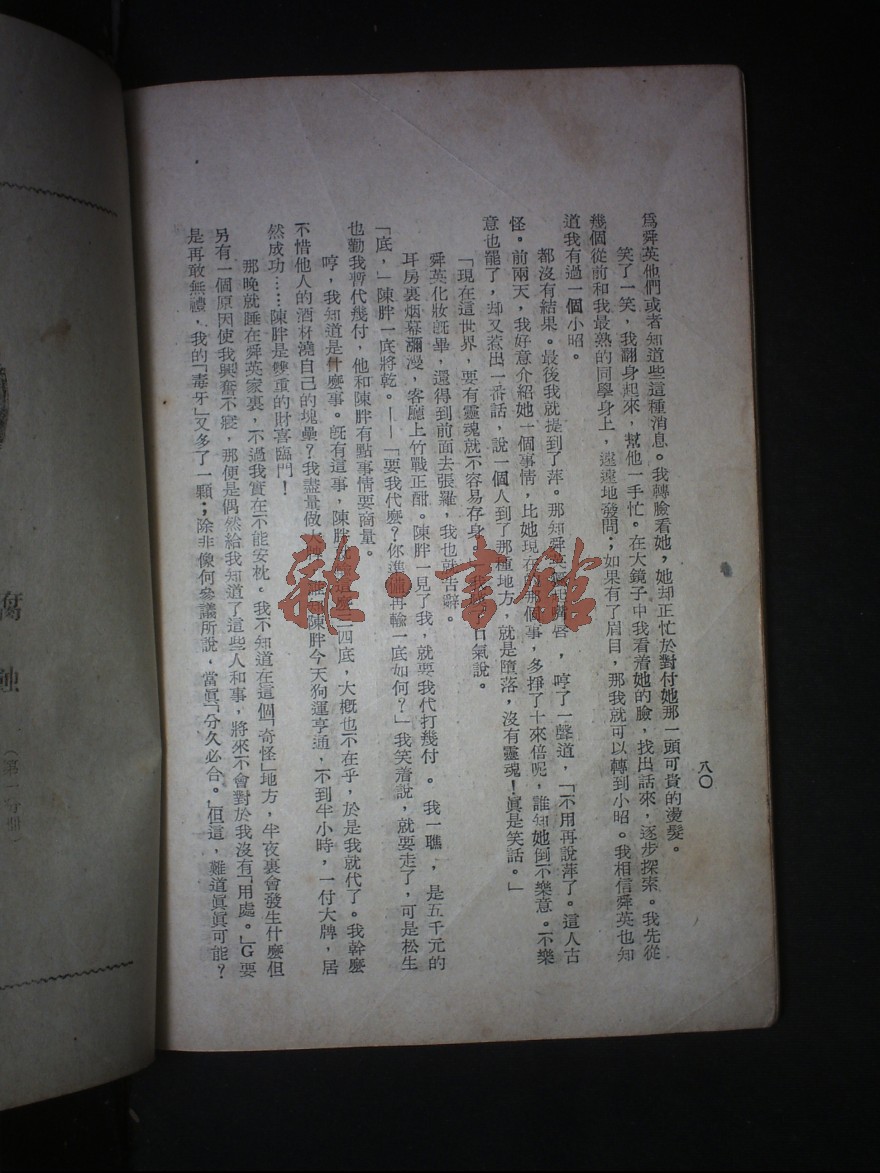 八〇
為舜英他們或者知道些這種消息。我轉臉看她，她却正忙於對付她那一頭可貴的燙髮。
笑了一笑，我翻身起來，幫他一手忙。在大鏡子中我看着她的臉，找出話來，逐步探索。我先從
幾個從前和我最熟的同學身上，遠遠地發問；如果有了眉目，那我就可以轉到小昭。我相信舜英也知
道我有過一個小昭。
都沒有結果。最後我就提到了萍。那知舜英唇，哼了一聲道，「不用再說萍了。這人古
怪。前兩天，我好意介紹她一個事情，比她現在的那個事，多掙了十來倍呢，誰知她倒不樂意。不樂
意也罷了，却又惹出一番話，說一個人到了那種地方，就是墮落，沒有靈魂！眞是笑話。」
「現在這世界，要有靈魂就不容易存身。」我口氣說。
舜英化妝旣畢，還得到前面去張羅，我也就告辭。
耳房裏烟幕瀰漫，客廳上竹戰正酣。陳胖一見了我，就要我代打幾付。我一瞧，是五千元的
「底，」陳胖一底將乾。——「要我代麼？你準備再輸一底如何？」我笑着說，就要走了，可是松生
也勸我暫代幾付，他和陳胖有點事情要商量。
哼，我知道是什麼事。旣有這事，陳胖就四底，大概也不在乎，於是我就代了。我幹麼
不惜他人的酒杯澆自己的塊壘？我盡量做大陳胖今天狗運亨通，不到半小時，一付大牌，居
然成功……陳胖是雙重的財喜臨門！
那晚就睡在舜英家裏，不過我實在不能安枕。我不知道在這個「奇怪」地方，半夜裏會發生什麼但
另有一個原因使我興奮不寢，那便是偶然給我知道了這些人和事，將來不會對於我沒有「用處。」G要
是再敢無禮，我的「毒牙」又多了一顆；除非像何參議所說，當眞「分久必合。」但這，難道眞眞可能？
腐
蝕
（第一分冊）
雜·書館